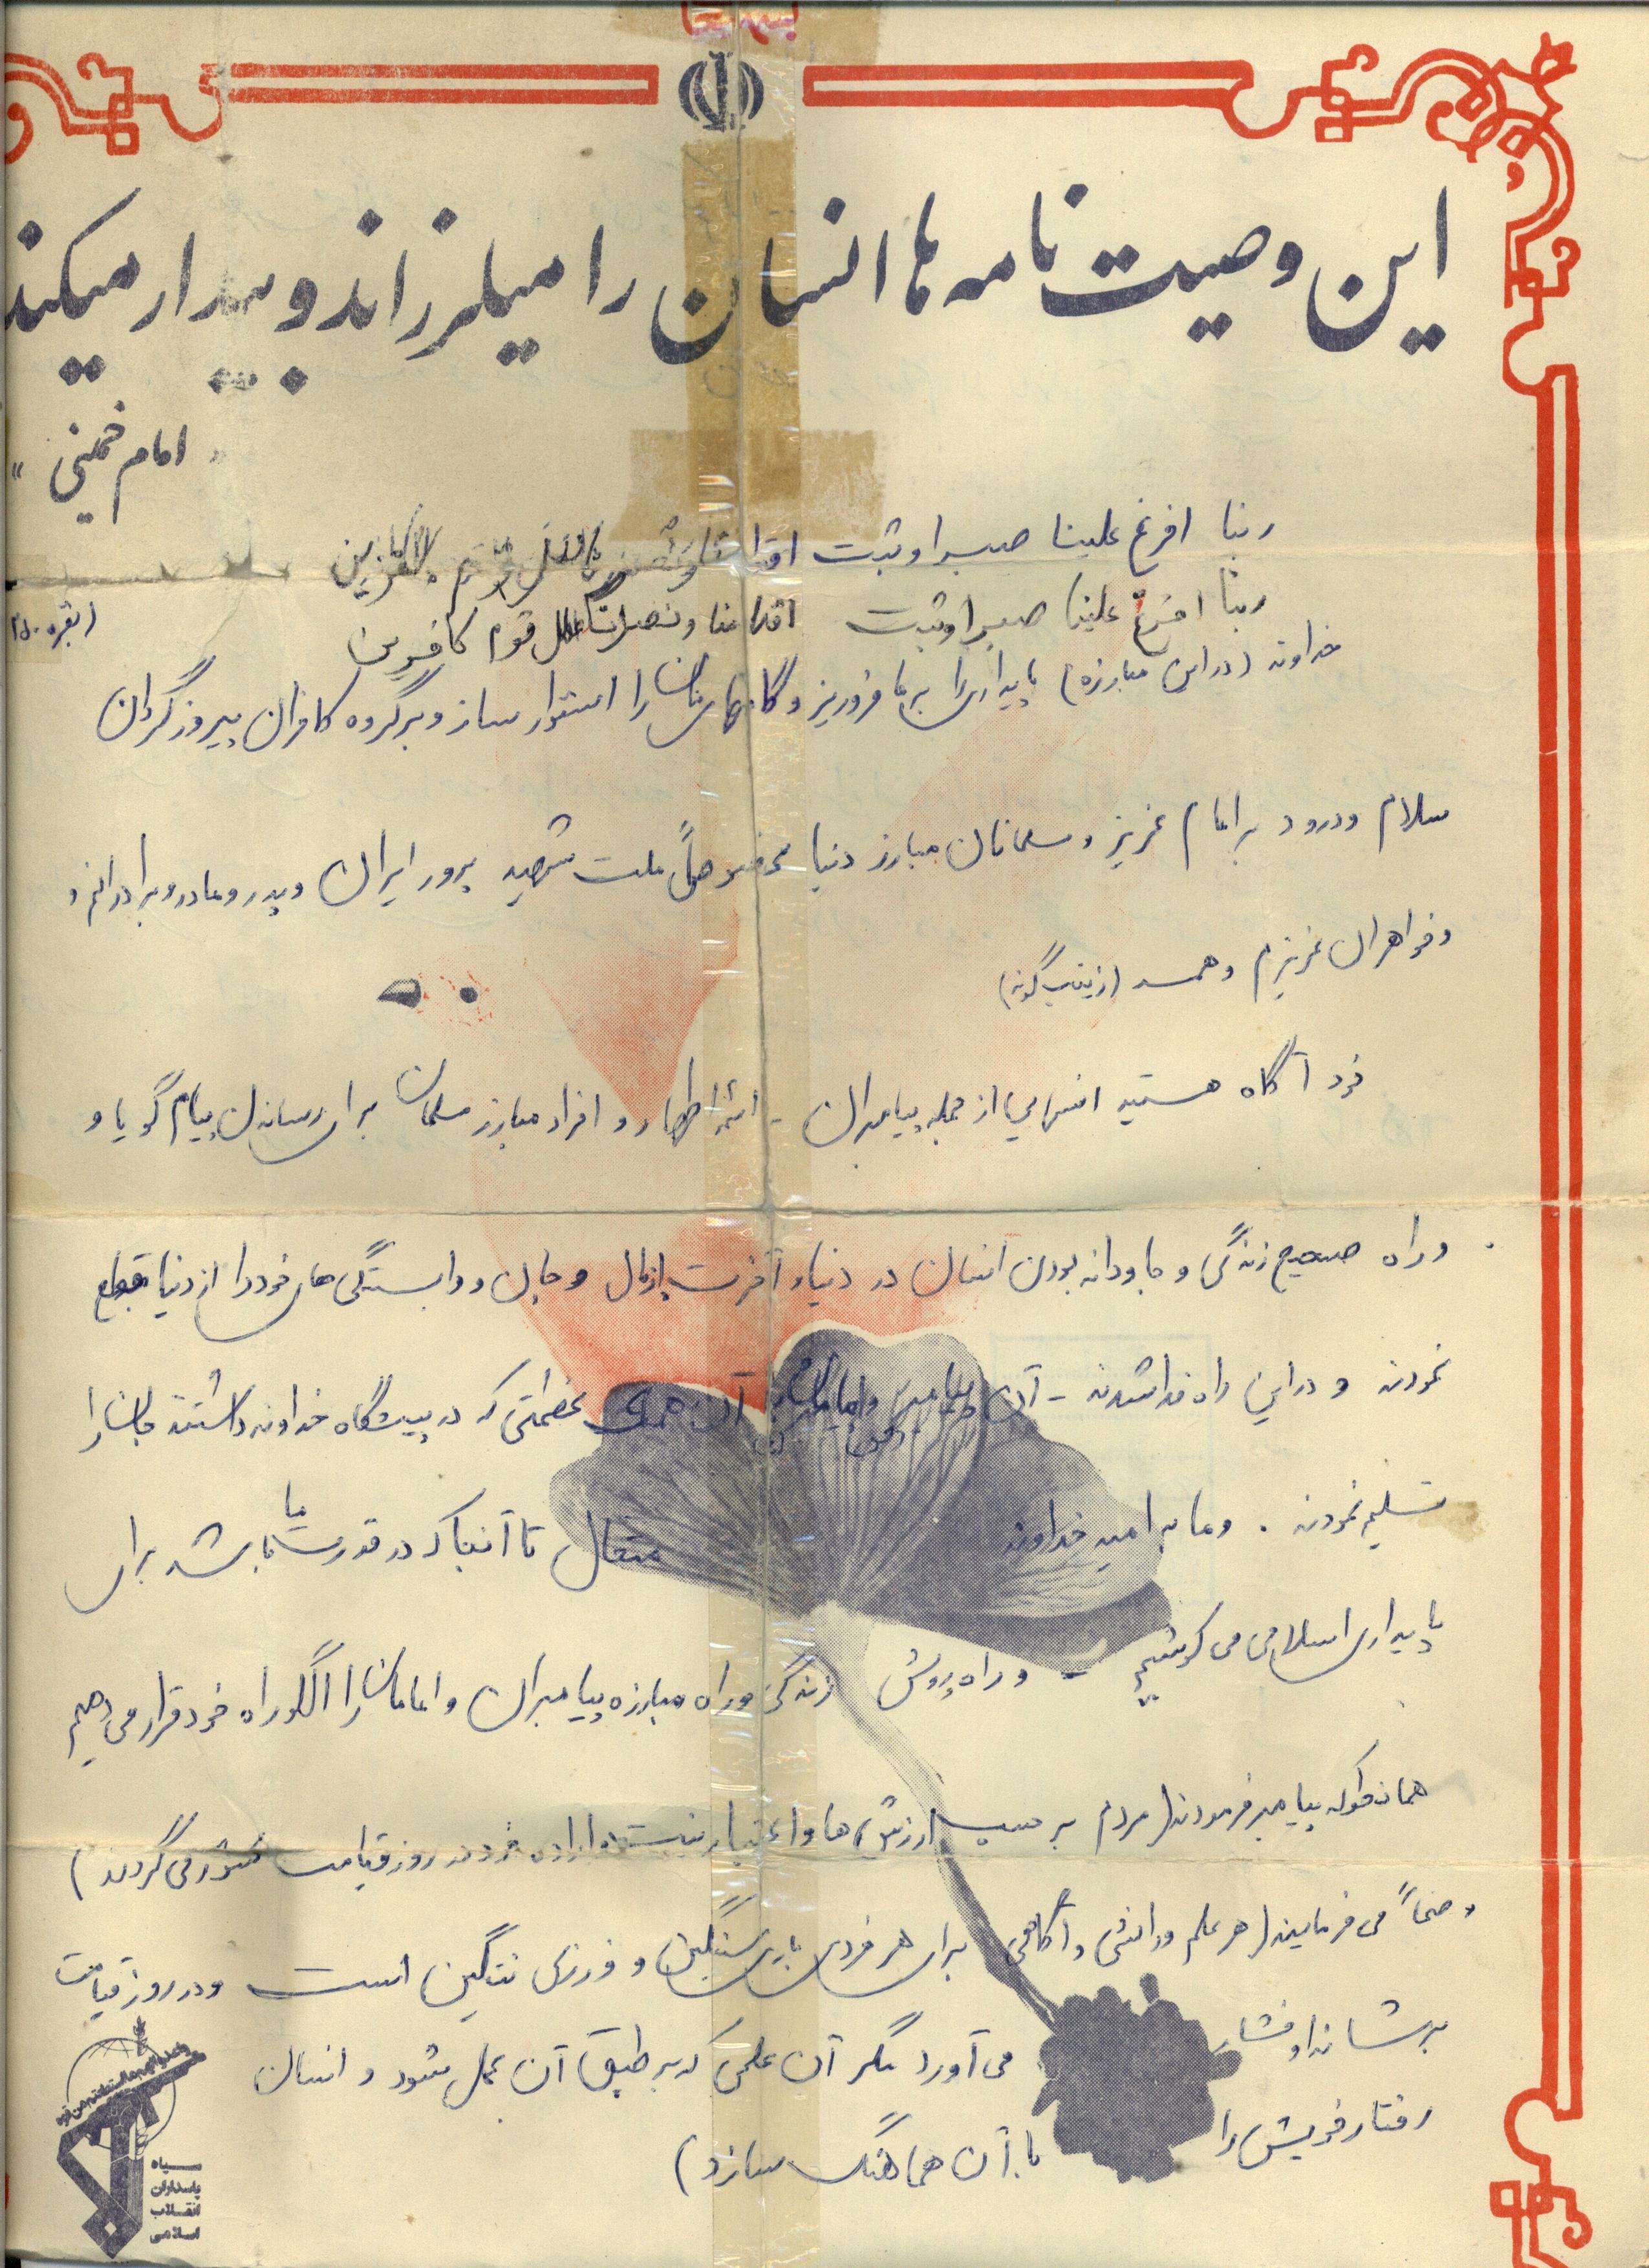 این وصیت نامه ها انسان را میلرزاند و بیدار میکند
" امام خمینی "
ربنا افرغ علینا صبرا و ثبت
ربنا افرغ علینا صبرا و ثبت اقدامنا و نصرنا علی قوم کافرین
(بقره ۲۵۰)
خداوند (در این مبارزه) پایداری را بر ما فروریز و گامهایمان را استوار ساز و بر گروه کافران پیروز گردان
سلام و درود بر امام عزیز و مسلمانان مبارز دنیا مخصوصاً ملت شهید پرور ایران و پدر و مادر و برادرانم و
و خواهران عزیزم و همسر (زینب گونه)
خود آگاه هستید انسانهایی از جمله پیامبران - ائمه اطهار و افراد مبارز مسلمان برای رساندن پیام گویا و
و راه صحیح زندگی و جاودانه بودن انسان در دنیا و آخرت از مال و جان و وابستگی های خود را از دنیا قطع
نمودند و در این راه فدا شدند - آن پیامبر و امامان با آن همه عظمتی که در پیشگاه خداوند داشتند جانشان را
تسلیم نمودند . و ما به امید خداوند متعال تا آنجا که در قدرت ما باشد برای
پایداری اسلام می کوشیم - و راه و روش زندگی و راه مبارزه پیامبران و امامان را الگو راه خود قرار می دهیم
همانطوکه پیامبر فرمودند (مردم بر حسب ارزش ها و اعتبار نیت و اراده خود در روز قیامت محشور می گردند)
و ضمناً می فرمایند (هر علم و دانش و آگاهی برای هر فردی باری سنگین و وزری ننگین است و در روز قیامت
بر شانه او فشار می آورد مگر آن علمی که بر طبق آن عمل شود و انسان
رفتار خویش را با آن هماهنگ سازد)
سپاه
پاسداران
انقلاب
اسلامی